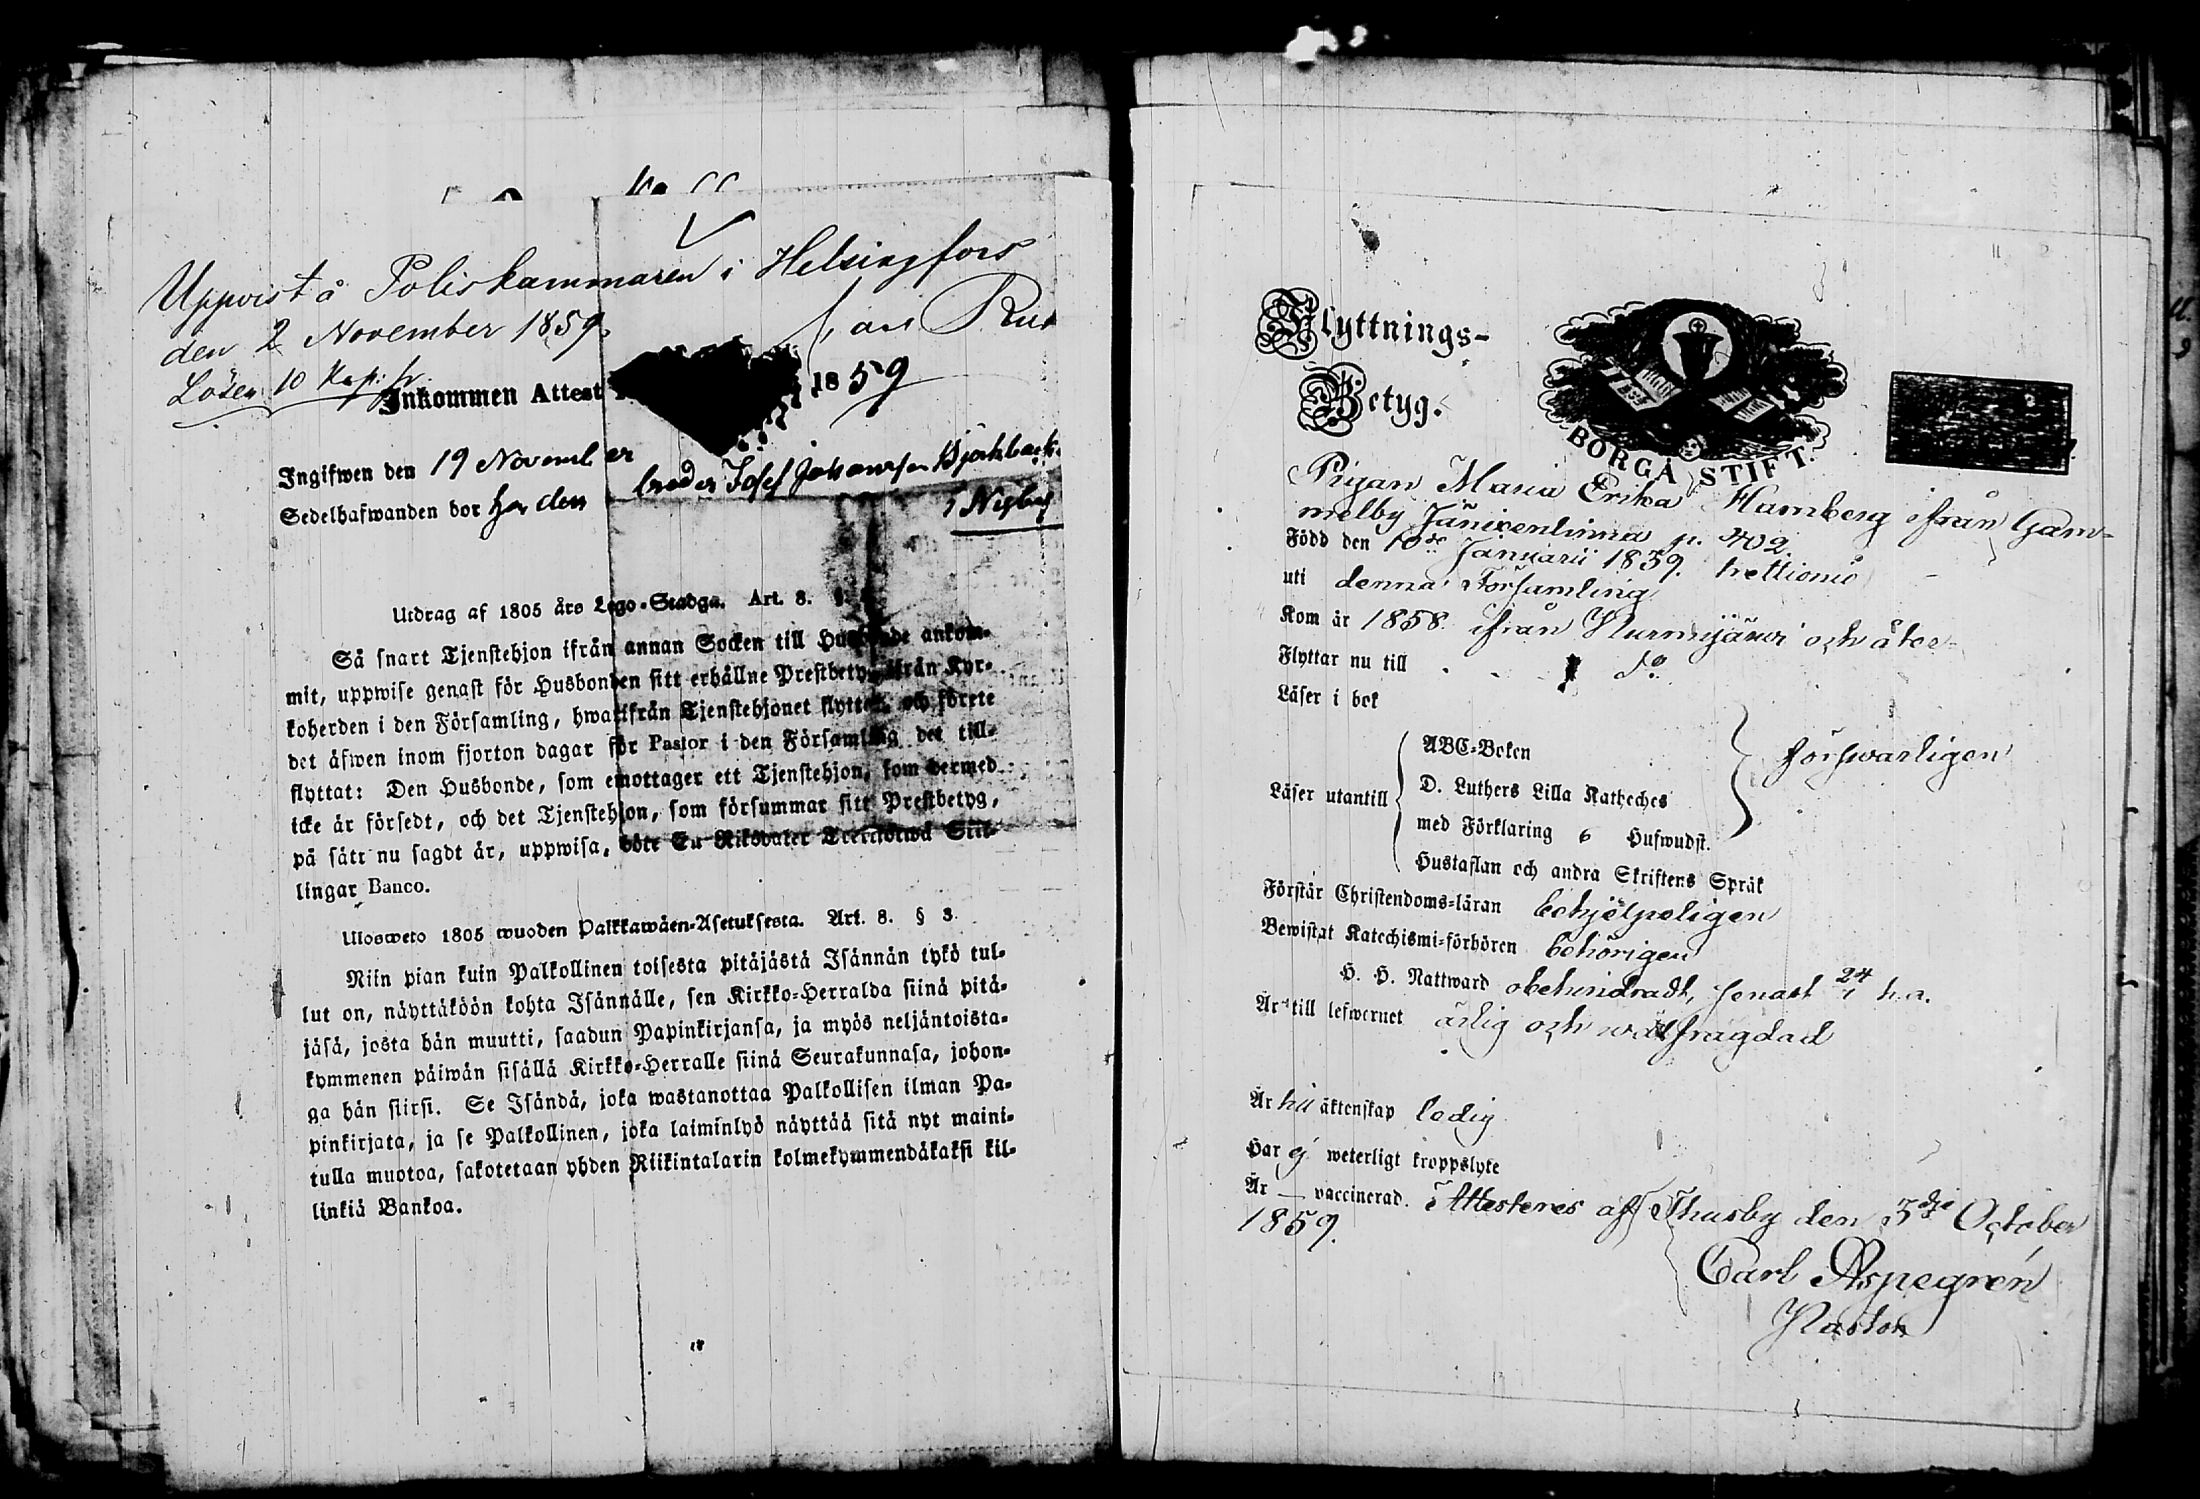 Uppvist å Poliskammaren i Helsingfors
den 2 November 1859.
Lösen 10 Kop: sr
Inkommen Attest 1859
Ingifwen den 19 November
Sedelhafwanden bor hos den broder Josef Johansson Björkbacka
i Nixby
Utdrag af 1805 års Lego-Stadga. Art. 8.
Så snart Tjenstehjon ifrån annan Socken till Husbonde ankom-
mit, uppwise genast för Husbonden sitt erhållne Prestbetyg ifrån Kyr-
koherden i den Församling, hwarifrån Tjenstehjonet flyttat, och förete
det äfwen inom fjorton dagar för Pastor i den Församling det till-
flyttat: Den Husbonde, som emottager ett Tjenstehjon, som dermed
icke är försedt, och det Tjenstehjon, som försummar sitt Prestbetyg,
på sätt nu sagdt är, uppwisa, böte En Riksdaler Trettiotwå Skil-
lingar Banco.
Ulosweto 1805 wuoden Palkkawäen-Asetuksesta. Art. 8. § 3.
Niin pian kuin Palkollinen toisesta pitäjästä Isännän tykö tul-
lut on, näyttäköön kohta Isännälle, sen Kirkko-Herralda siinä pitä-
jäsä, josta hän muutti, saadun Papinkirjansa, ja myös neljäntoista-
kymmenen päiwän sisällä Kirkko-Herralle siinä Seurakunnasa, johon-
ga hän siirsi. Se Isändä, joka wastanottaa Palkollisen ilman Pa-
pinkirjata, ja se Palkollinen, joka laiminlyö näyttää sitä nyt maini-
tulla muotoa, sakotetaan yhden Riikintalarin kolmekymmendäkaksi kil-
linkiä Bankoa.
Flyttnings-
Betyg.
BORGÅ STIFT.
Pigan Maria Erika Hamberg ifrån Gam-
melby Jänixenlinna p. 402.
Född den 10de Januarii 1839. trettionio
uti denna Församling
Kom år 1858 ifrån Nurmijärwi och åter-
Flyttar nu till do
Läser i bok
Läser utantill
ABC-Boken
D. Luthers Lilla Katheches
med Förklaring 6 Hufwudst.
Hustaflan och andra Skriftens Språk
försvarligen
Förstår Christendoms-läran behjelpeligen
Bewistat Katechismi-förhören behörigen
H. H. Nattward obehindradt, senast 24/7 h.a.
Är till lefwernet ärlig och wälfrägdad
Är till äktenskap ledig
Har ej weterligt kroppslyte
Är — vaccinerad. Attesteres af Thusby den 3dje October
1859.
Carl Aspegrén
Pastor